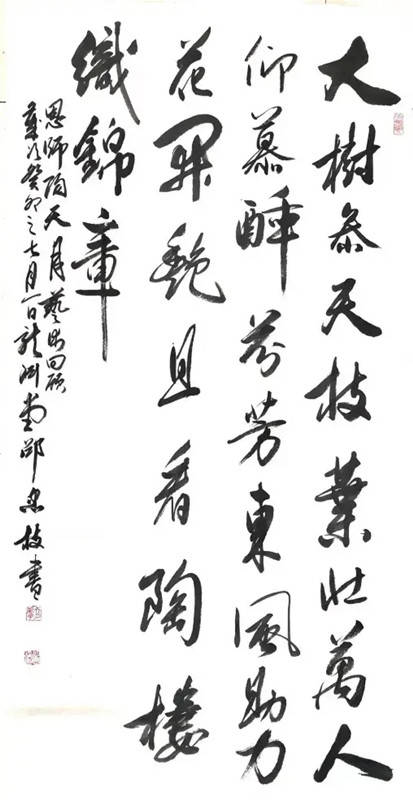 大樹叅天枝葉壯萬人
仰慕醉芬芳東風助力
花開艷且看陶樓
織錦章
恩師陶天月藝海回顧
癸卯之七月一日龍渊堂邵忠枝書